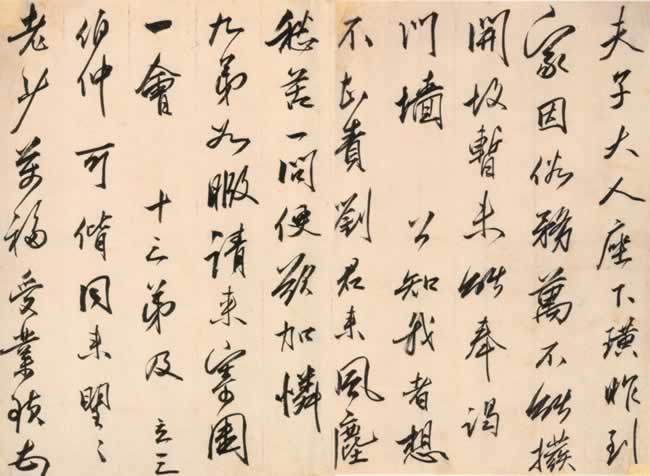 夫子大人座下璜昨到
家因俗務萬不能擺
開故暫未能奉謁
門墻 公知我者想
不上責劉君來風塵
愁苦一問便欲加憐
九弟如暇請來寒園
一會 十三弟及立三
伯仲可偕同來望望
老少萬福受業璜